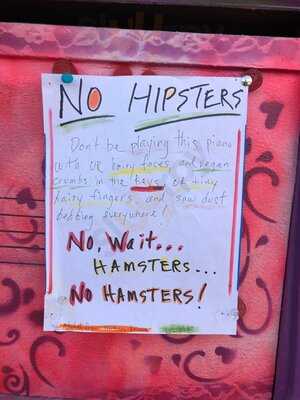 NO HIPSTERS
Dont be playing this piano
with ur hairy faces and vegan
crumbs in the keys, ur tiny
hairy fingers and saw dust
bedding everywhere!
No, Wait...
HAMSTERS...
NO HAMSTERS!